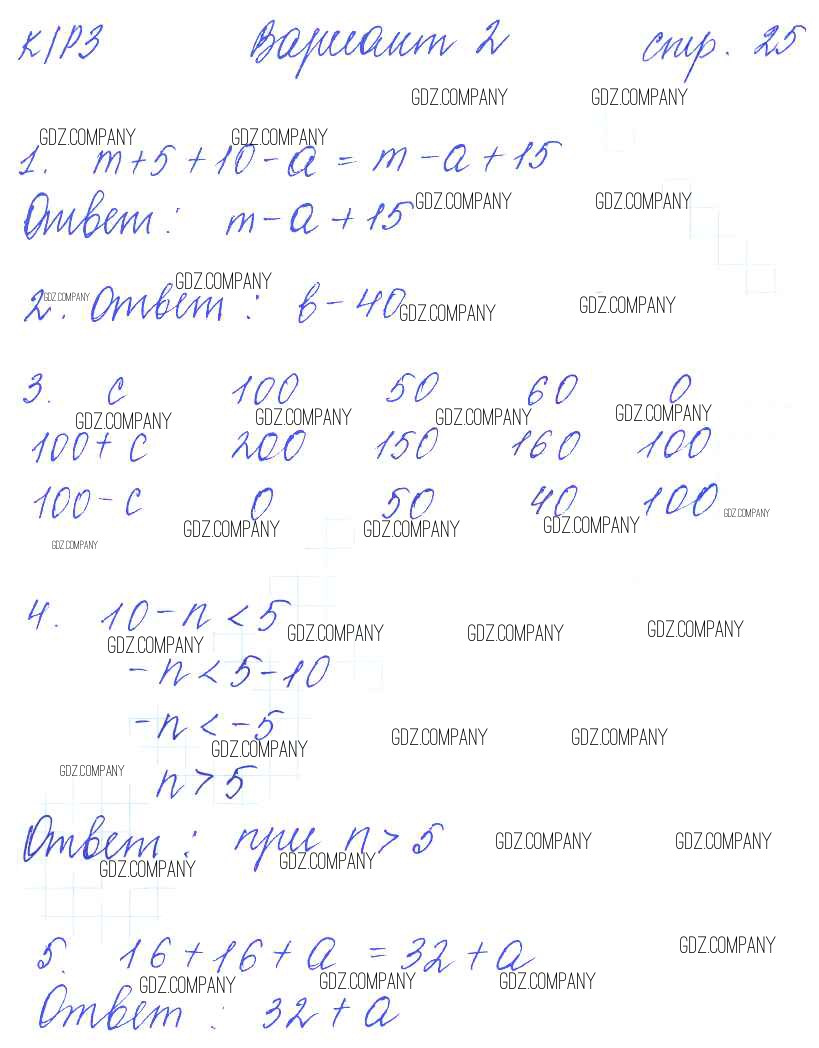 К/Р3 Вариант 2 стр. 25
GDZ.COMPANY GDZ.COMPANY
GDZ.COMPANY GDZ.COMPANY
1. m+5+10-a = m-a+15
GDZ.COMPANY GDZ.COMPANY
Ответ: m-a+15
GDZ.COMPANY GDZ.COMPANY
2. Ответ: в-40
GDZ.COMPANY GDZ.COMPANY
3. c 100 50 60 0
GDZ.COMPANY GDZ.COMPANY GDZ.COMPANY GDZ.COMPANY
100+c 200 150 160 100
100-c 0 50 40 100
GDZ.COMPANY
GDZ.COMPANY GDZ.COMPANY GDZ.COMPANY
GDZ.COMPANY
4. 10-n<5
GDZ.COMPANY GDZ.COMPANY GDZ.COMPANY GDZ.COMPANY
-n<5-10
-n<-5
GDZ.COMPANY GDZ.COMPANY GDZ.COMPANY
GDZ.COMPANY
n>5
Ответ: при n>5
GDZ.COMPANY GDZ.COMPANY
GDZ.COMPANY GDZ.COMPANY
5. 16+16+a = 32+a
GDZ.COMPANY
GDZ.COMPANY GDZ.COMPANY GDZ.COMPANY
Ответ: 32+a